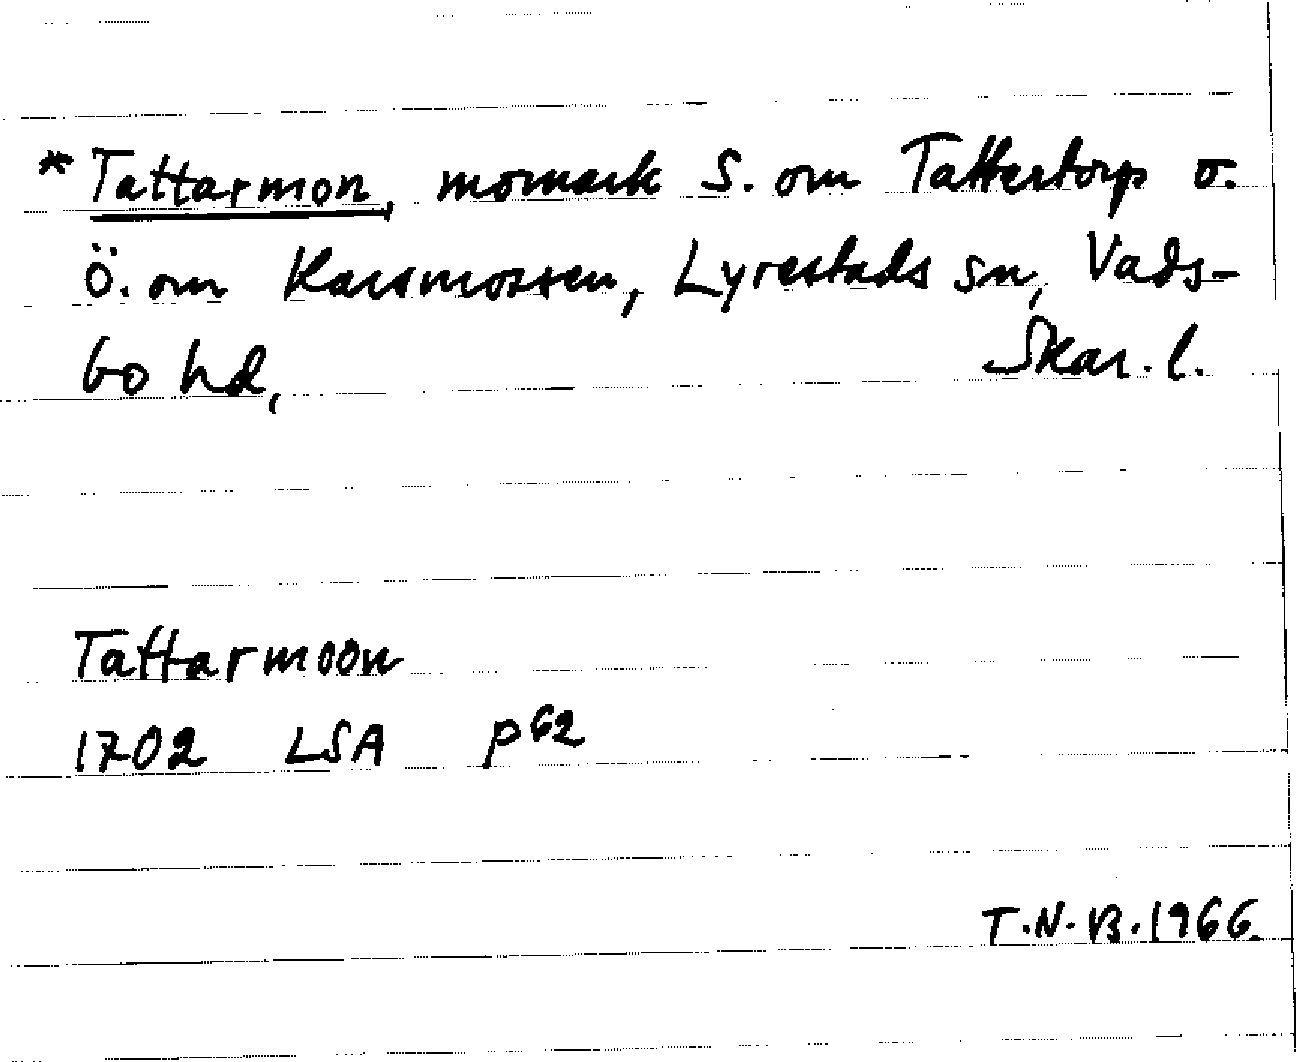 *Tattarmon, momark S. om Tattertorp o.
Ö. om Karsmossen, Lyrestads sn, Vads-
bo hd, Skar. l.
Tattarmoon
1702 LSA P62
T.N.B.1966.